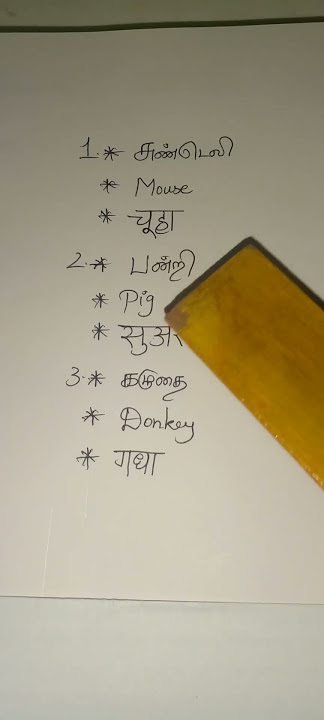 1. * சுண்டெலி
* Mouse
* चूहा
2. * பன்றி
* Pig
* सुअर
3. * கழுதை
* Donkey
* गधा